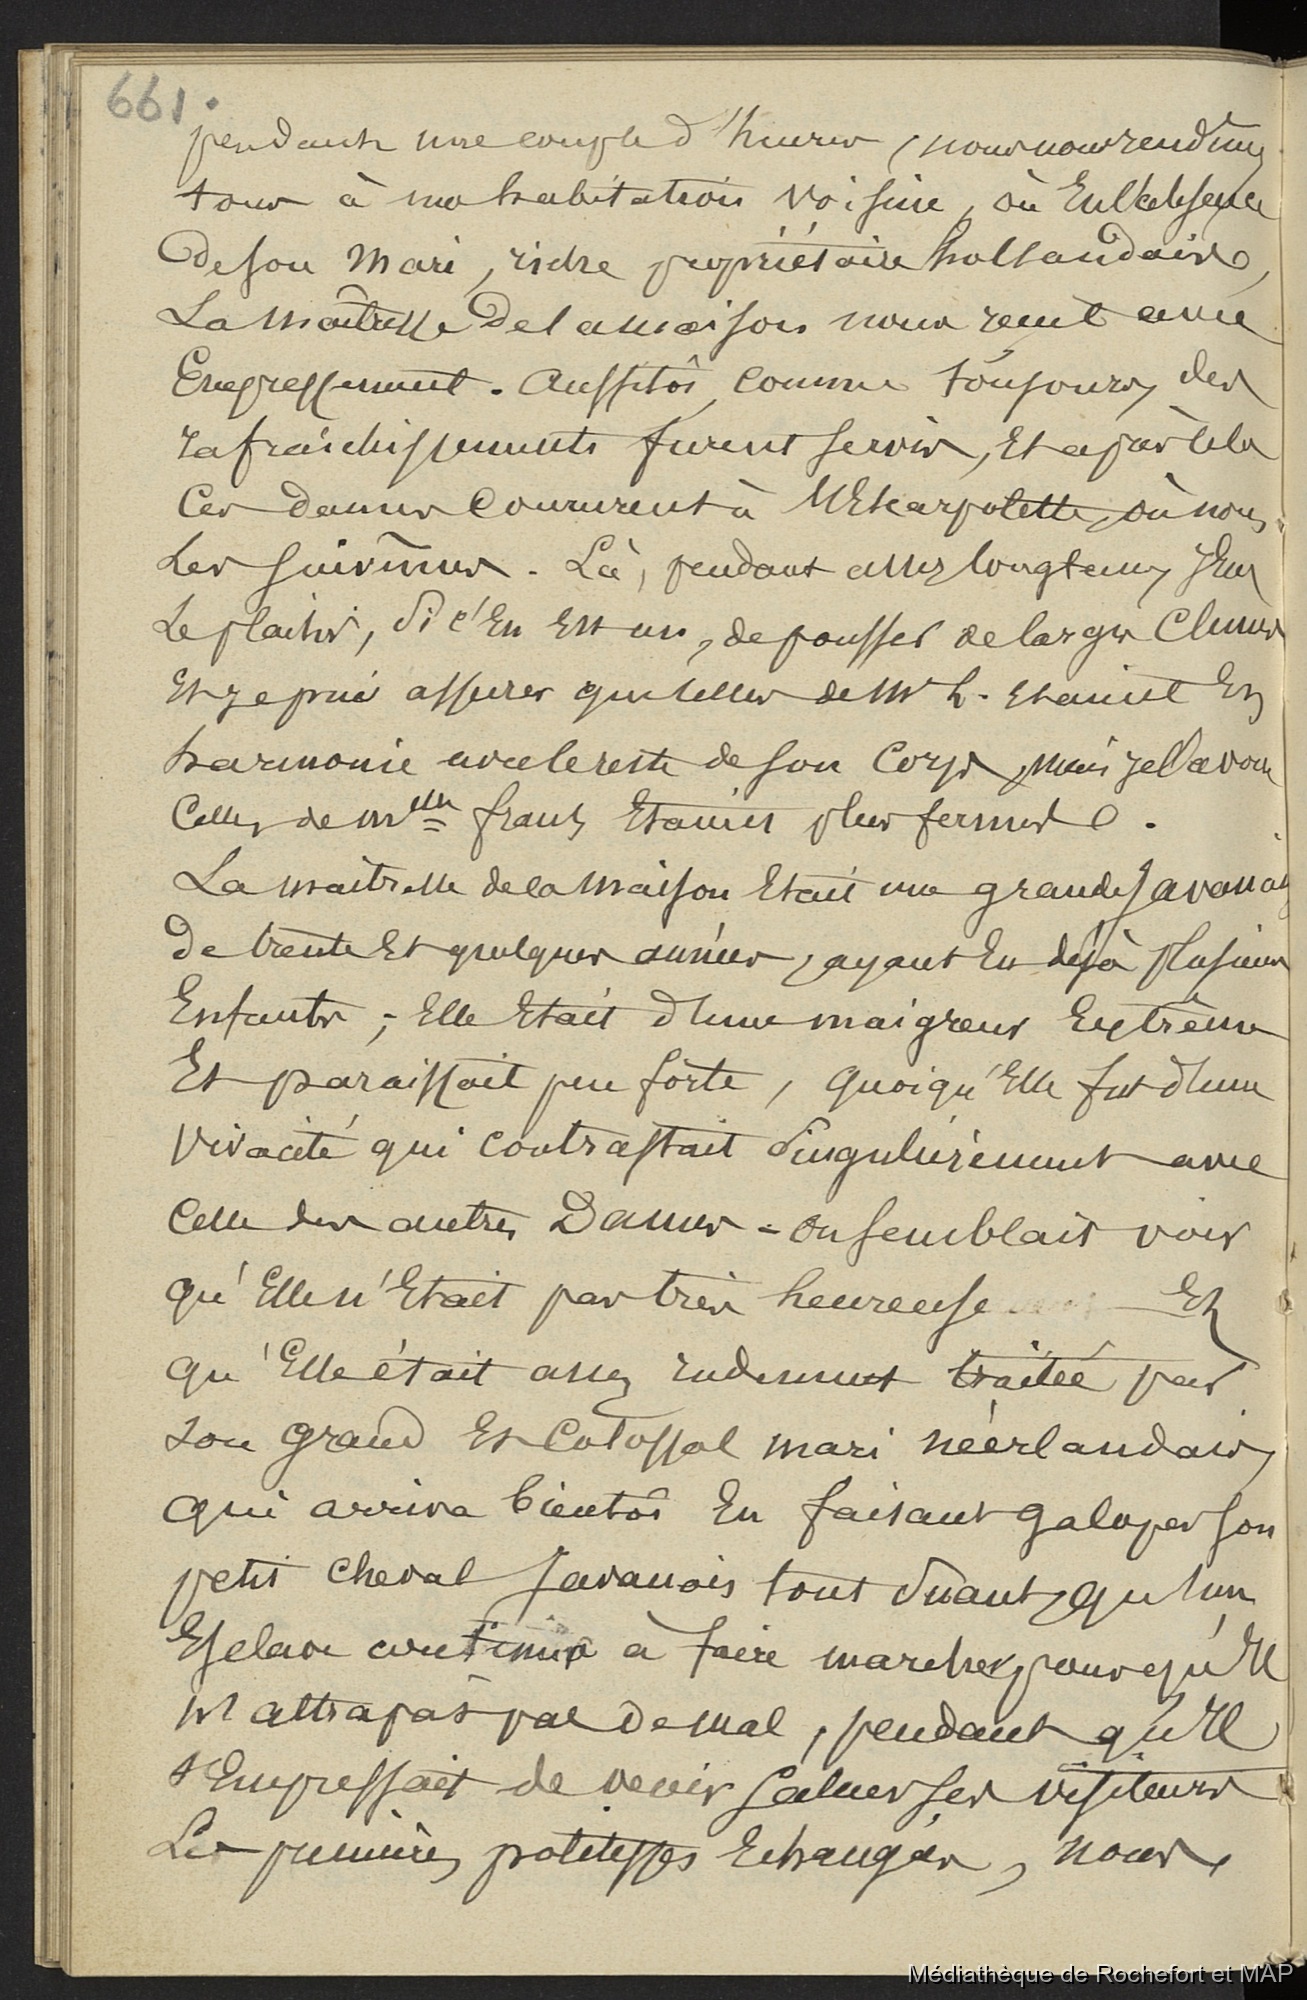 661.
pendant une couple d'heures, nous nous rendimes
tous à une habitation voisine, où En l'absence
De son Mari, riche propriétaire hollandais,
La Maîtresse De la maison nous reçut avec
Empressement. Aussitôt, comme toujours, des
rafraîchissements furent servis, Et après cela
Ces dames Coururent à l'Escarpolette, où nous
Les suivîmes. Là, pendant assez longtems, j'Eus
Le plaisir, si c'En Est un, de pousser de larges
Et je puis assurer que celles de Mr h. Etaient En
harmonie avec le reste de son Corps, mais je l'avoue
Celles de Mlle frantz Etaient plus fermes.
La maitresse de la Maison Etait une grande Javanaise
De trente Et quelques années, ayant Eu déjà plusieurs
Enfants ; Elle Etait d'une maigreur Extrême
Et paraissait peu forte, quoiqu'Elle fut d'une
vivacité qui contrastait singulièrement avec
Celle des autres Dames - on semblait voir
qu'Elle n'Etait pas très heureuse Et
qu'Elle était assez rudement traitée par
son grand Et Colossal mari néerlandais,
qui arriva bientôt En faisant galoper son
petit cheval Javanais tout suant, qu'un
Esclave continua à faire marcher, pour qu'Il
n'attrapât pas De mal, pendant qu'Il
s'Empressait de venir saluer ses visiteurs
Les premières politesses Echangées, nous
Médiathèque de Rochefort et MAP